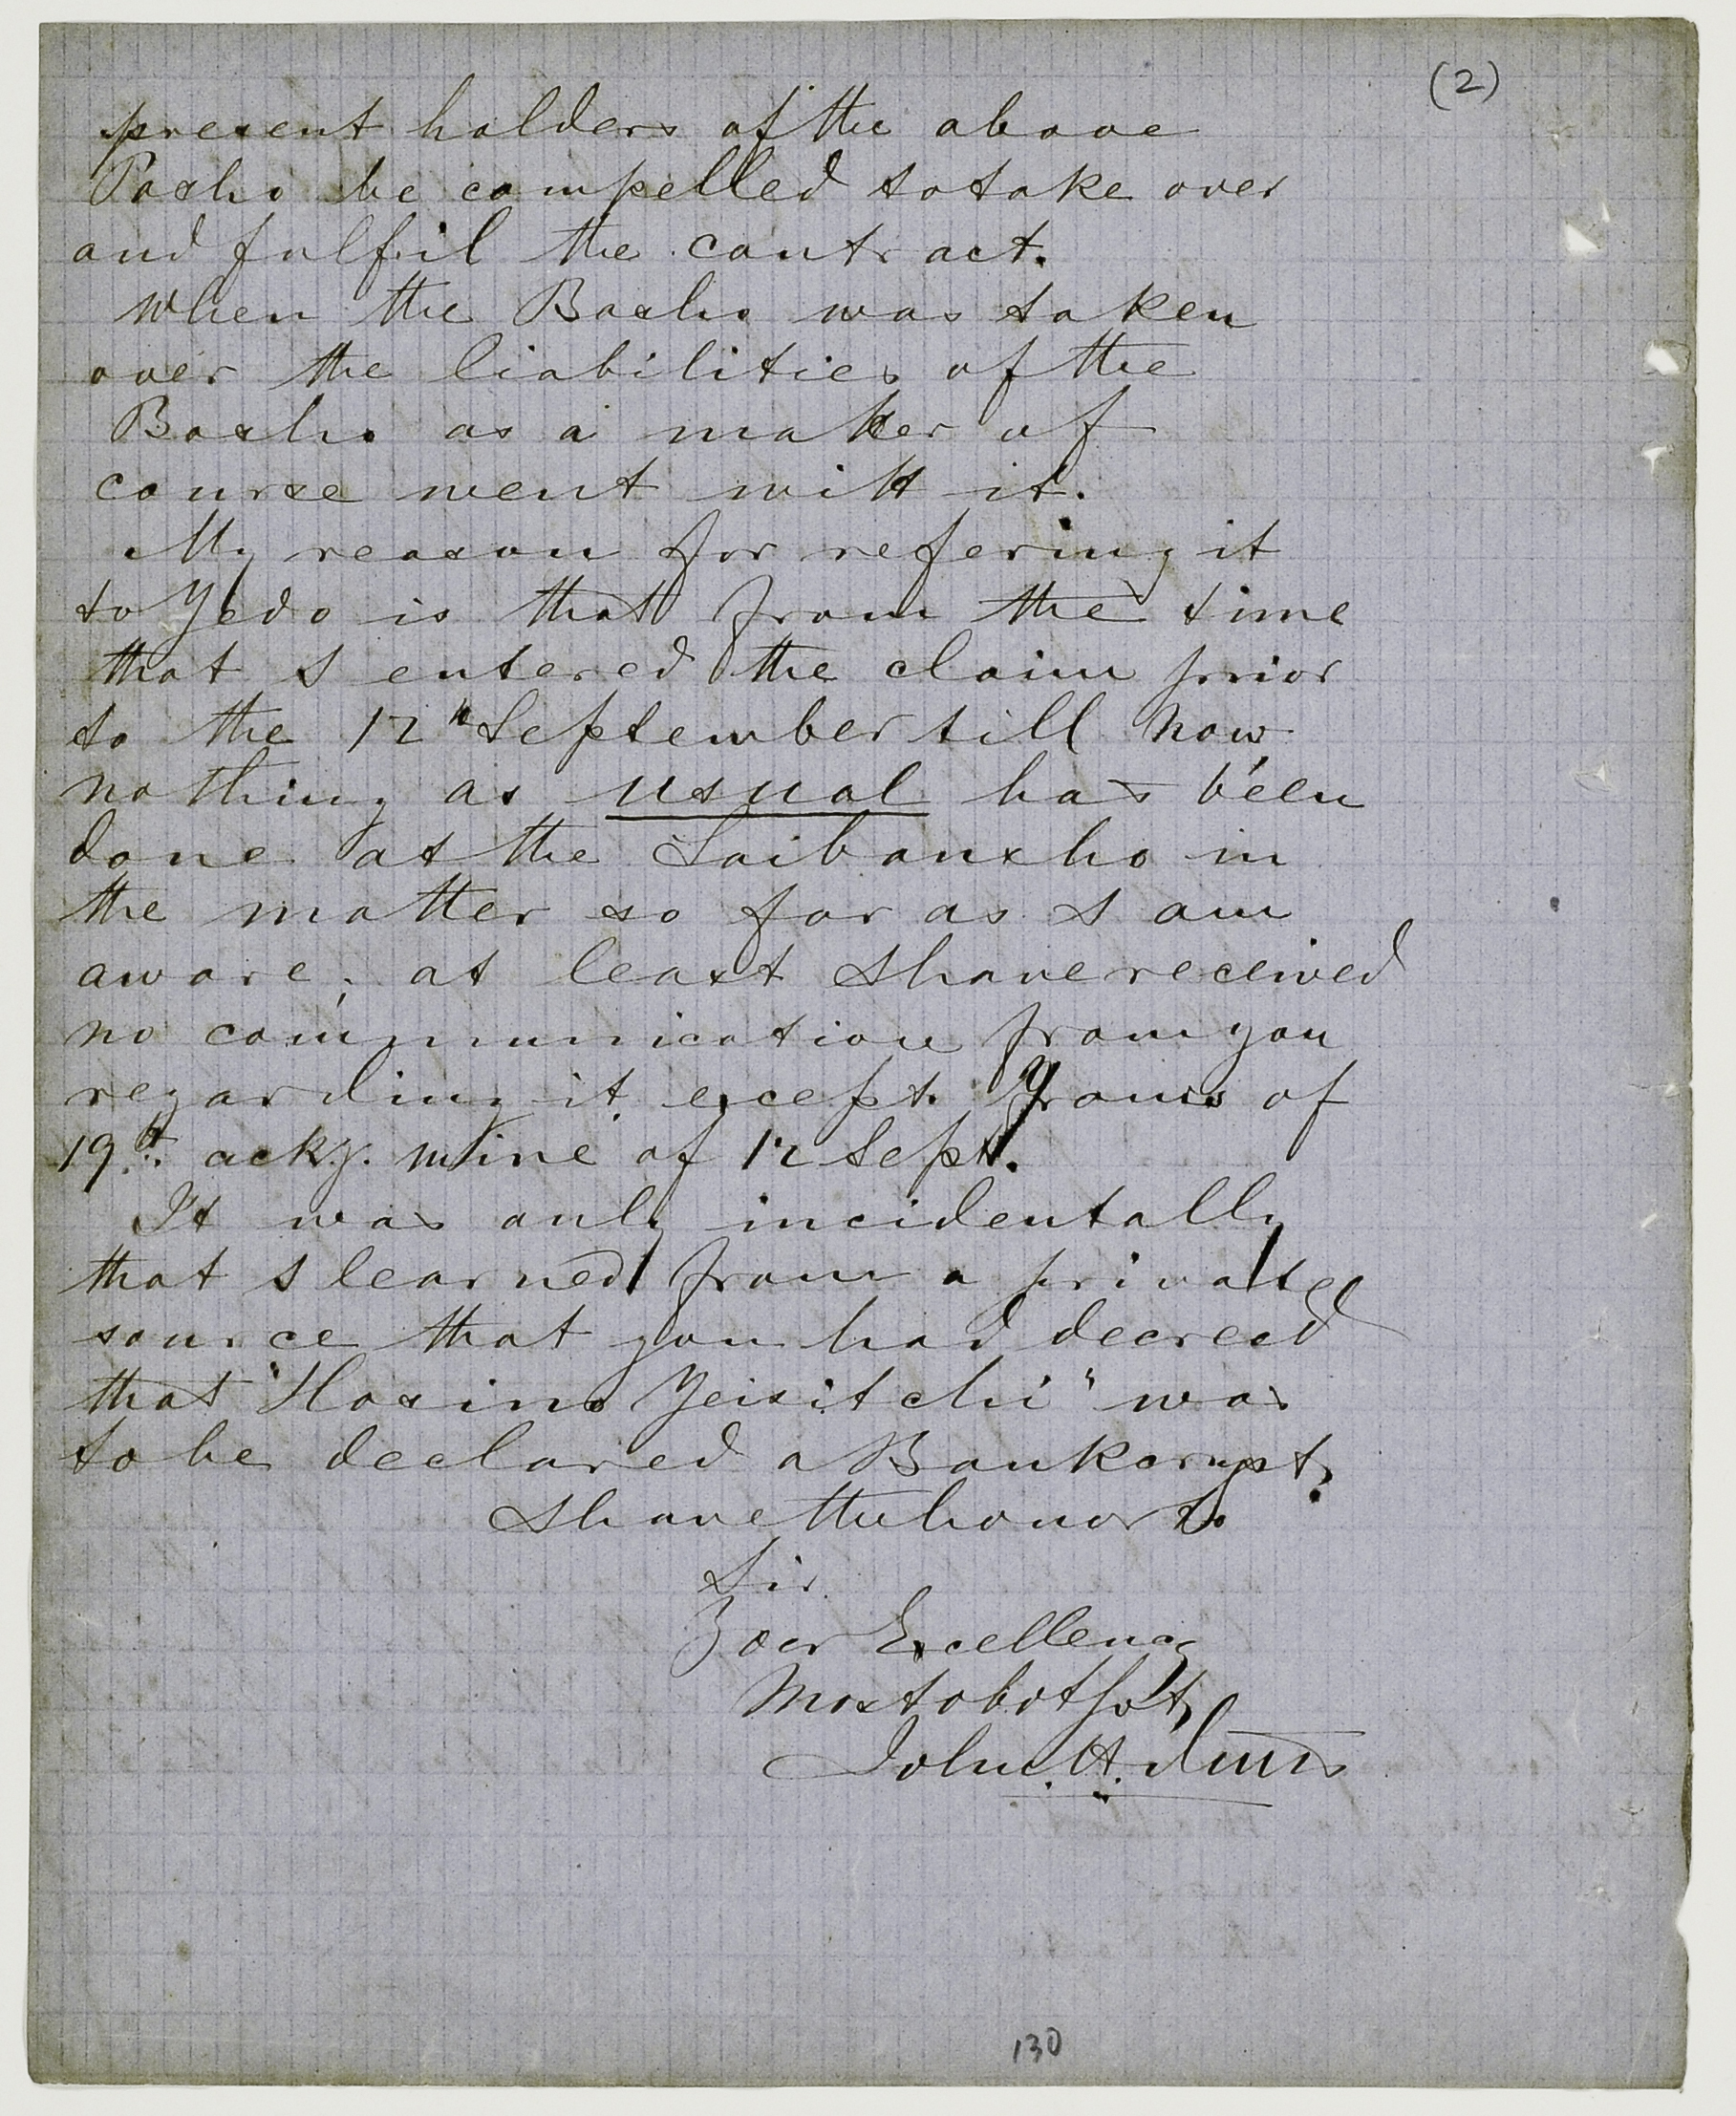 (2)
present holders of the above
Basho be compelled to take over
and fulfil the contract.
When the Basho was taken
over the liabilities of the
Basho as a matter of
course went with it.
My reason for refering it
to Yedo is that from the time
that I entered the claim prior
to the 12th September till now
nothing as usual has been
done at the Saibansho in
the matter so far as I am
aware; at least I have received
no communication from you
regarding it except Yours of
19th: ackg. mine of 12 Sept.
It was only incidentally
that I learned from a private
source that you had decreed
that "Hosino Yeisitchi" was
to be declared a Bankcrupt,
I have the honor to
Sir
Your Excellency
Most obt svt,
John. H. Duus
130